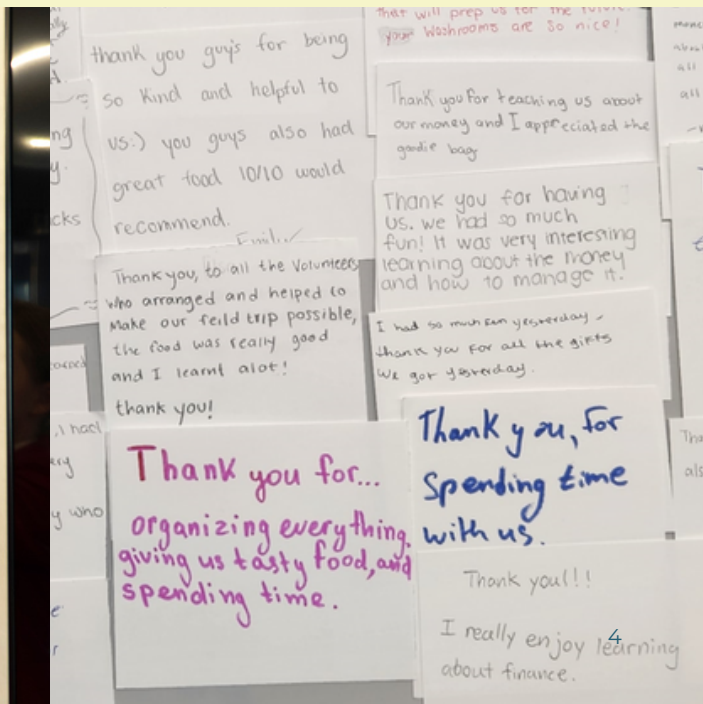 thank you guys for being
so kind and helpful to
us:) you guys also had
great food 10/10 would
recommend.
Emily
Thank you, to all the Volunteers
who arranged and helped to
make our feild trip possible,
the food was really good
and I learnt alot!
thank you!
Thank you for...
organizing everything,
giving us tasty food, and
spending time.
that will prep us for the future
your Washrooms are so nice!
Thank you for teaching us about
our money and I appreciated the
goodie bag
Thank you for having
us. we had so much
fun! It was very interesting
learning about the money
and how to manage it.
I had so much fun yesterday
thank you for all the gifts
We got yesterday.
Thank you, for
spending time
with us.
Thank you!!!
4
I really enjoy learning
about finance.
ng
y.
cks
, I had
ery
y who
e
r
all
all
als